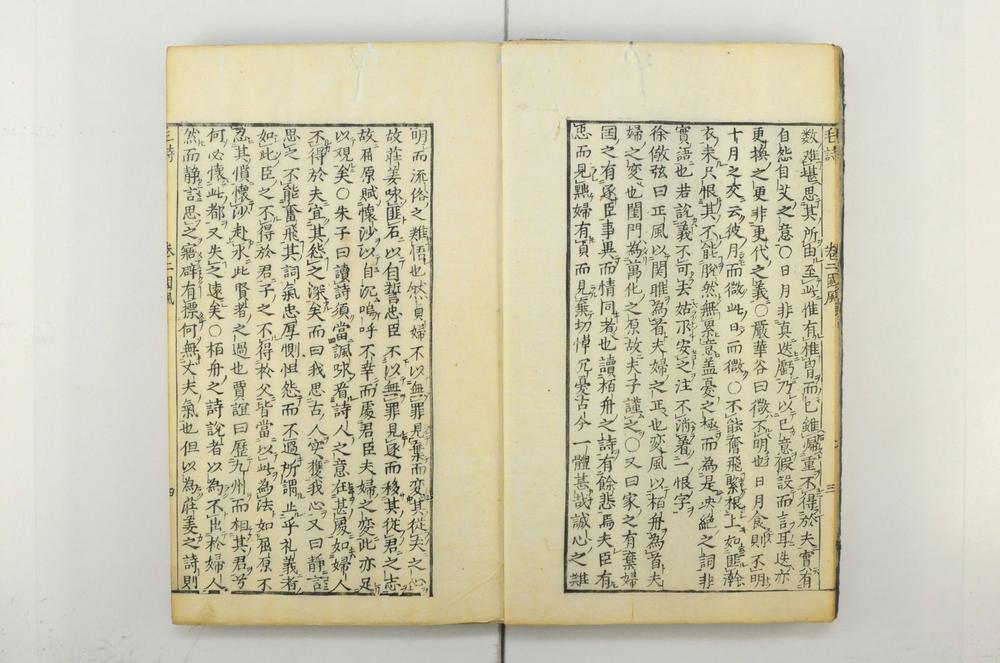 毛詩 卷二國風 三
数難堪思其所由至此惟有椎胷而已雖爲重不得於夫實有
自怨自艾之意〇日月非真迭虧乃以己意假設而言耳迭亦
更換之更非更代之義〇嚴華谷曰微不明也日月食則不明
十月之交云彼月而微此日而微〇不能奮飛緊根上如匪澣
衣来只恨其不能脫然無累意盖憂之極而為是决絕之詞非
實語也若說義不可去姑不安之注不消着一恨字
徐儆弦曰正風以関雎為首夫婦之正也変風以栢舟為首夫
婦之変也閨門為萬化之原故夫子謹之〇又曰家之有棄婦
国之有逐臣事異而情同者也讀栢舟之詩有餘悲焉夫臣有
忠而見黜婦有貞而見棄切悼冗憂古今一體甚哉誠心之難
明而流俗之難悟也然貞婦不以無罪見棄而変其從夫之心
故荘姜咏匪石以自誓忠臣不以無罪見逐而移其從君之志
故屈原賦懷沙以自沉嗚呼不幸而處君臣夫婦之変此亦足
以观矣〇朱子曰讀詩須當諷咏看詩人之意在甚處如婦人
不得於夫宜其怨之深矣而曰我思古人实獲我心又曰静言
思之不能奮飛其詞氣忠厚惻怛怨而不過所謂止乎礼義者
如此臣之不得於君子之不得於父皆當以此為法如屈原不
忍其憤懷沙赴水此賢者之過也賈誼曰歷九州而相其君兮
何必懷此都又失之遠矣〇栢舟之詩說者以為不出於婦人
然而静言思之寤辟有摽何無丈夫氣也但以為荘姜之詩則
毛詩 卷二國風 四